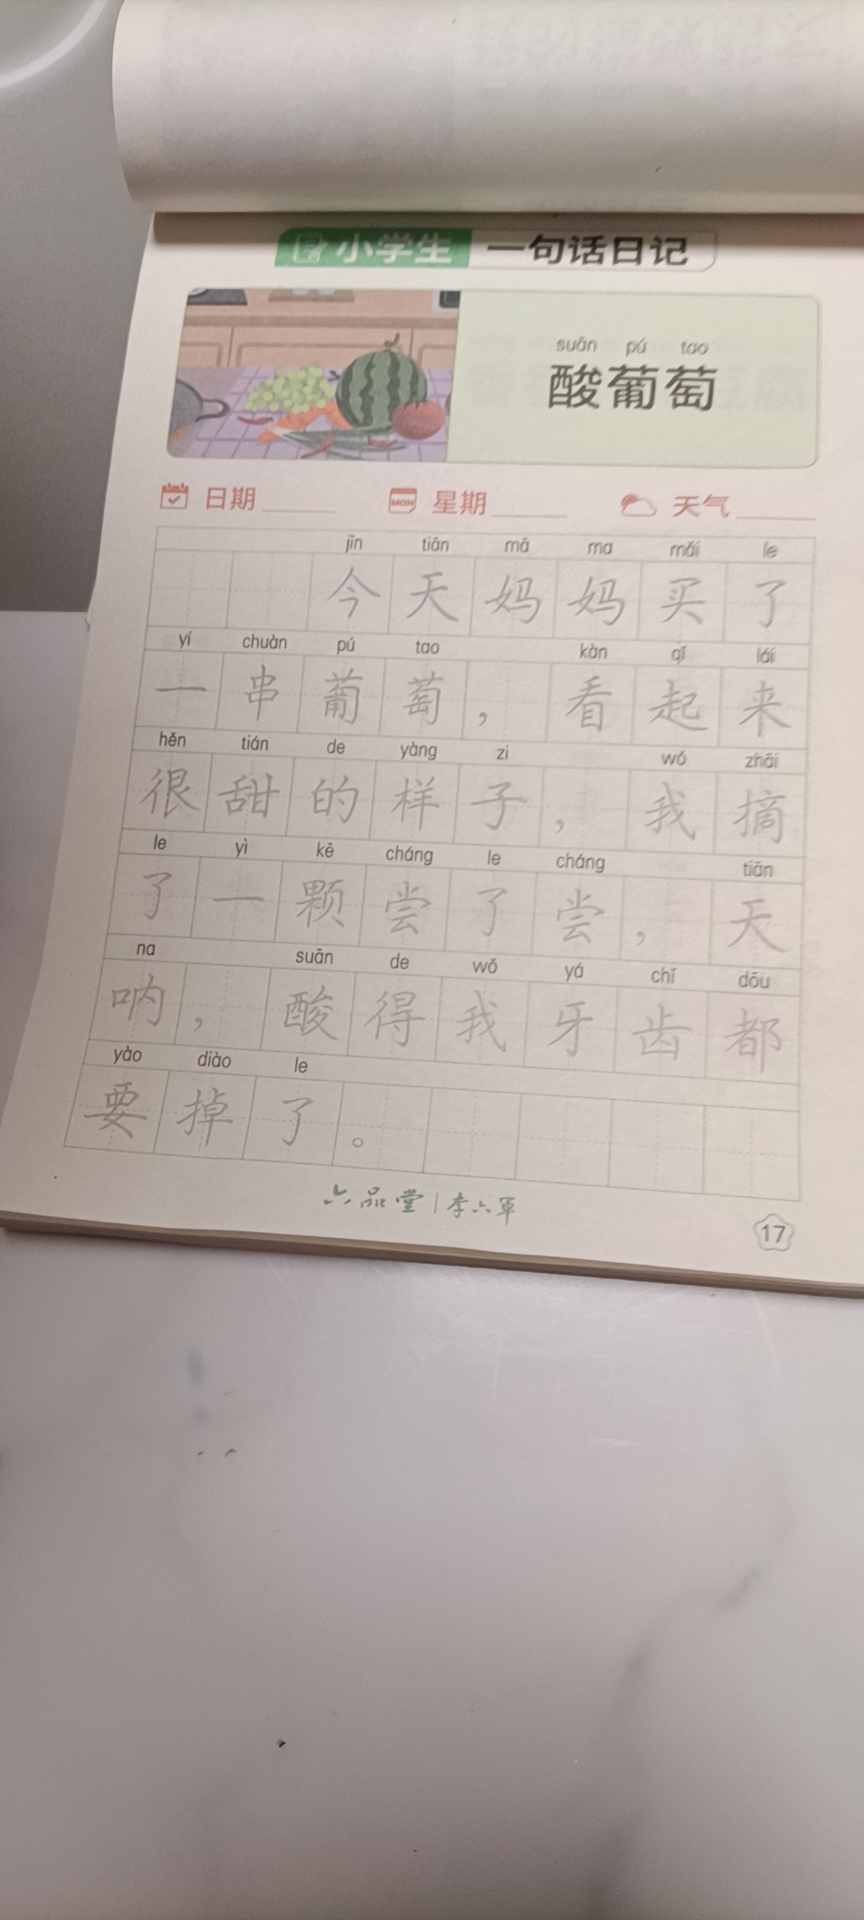 小学生 一句话日记
suān pú tao
酸葡萄
日期 星期 天气
jīn tiān mā ma mǎi le
今天妈妈买了
yí chuàn pú tao kàn qǐ lái
一串葡萄，看起来
hěn tián de yàng zi wǒ zhāi
很甜的样子，我摘
le yì kē cháng le cháng tiān
了一颗尝了尝，天
na suān de wǒ yá chǐ dōu
呐，酸得我牙齿都
yào diào le
要掉了。
六品堂 | 李六军
17